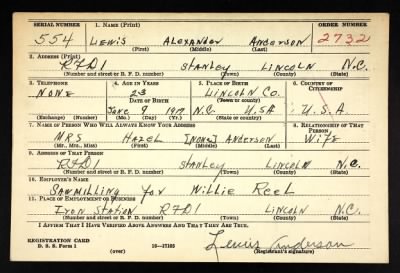 SERIAL NUMBER 1. NAME (Print) ORDER NUMBER
554 LEWIS ALEXANDER ANDERSON 2732
(First) (Middle) (Last)
2. ADDRESS (Print)
RFD1 STANLEY LINCOLN N.C.
(Number and street or R. F. D. number) (Town) (County) (State)
3. TELEPHONE 4. AGE IN YEARS 5. PLACE OF BIRTH 6. COUNTRY OF CITIZENSHIP
NONE 23 LINCOLN CO.
DATE OF BIRTH (Town or county)
June 9 1917 N.C. USA U.S.A
(Exchange) (Number) (Mo.) (Day) (Yr.) (State or country)
7. NAME OF PERSON WHO WILL ALWAYS KNOW YOUR ADDRESS 8. RELATIONSHIP OF THAT PERSON
MRS HAZEL [NONE] ANDERSON WIFE
(Mr., Mrs., Miss) (First) (Middle) (Last)
9. ADDRESS OF THAT PERSON
RFD1 STANLEY LINCOLN N.C.
(Number and street or R. F. D. number) (Town) (County) (State)
10. EMPLOYER'S NAME
SAWMILLING for Willie Reel
11. PLACE OF EMPLOYMENT OR BUSINESS
Iron Station RFD1 LINCOLN N.C.
(Number and street or R. F. D. number) (Town) (County) (State)
I AFFIRM THAT I HAVE VERIFIED ABOVE ANSWERS AND THAT THEY ARE TRUE.
REGISTRATION CARD
D. S. S. Form 1 (over) 16—17105 Lewis Anderson
(Registrant's signature)